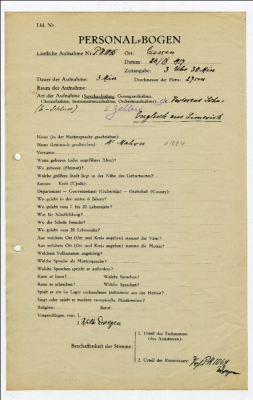 Lfd. Nr.
PERSONAL-BOGEN
Lautliche Aufnahme Nr.: PK 1186 Ort: Giessen
Datum: 24/IX 1917
Zeitangabe: 3 Uhr 30 Min
Dauer der Aufnahme: 3 Min Durchmesser der Platte: 27 cm
Raum der Aufnahme:
Art der Aufnahme (Sprechaufnahme, Gesangsaufnahme,
Choraufnahme, Instrumentenaufnahme, Orchesteraufnahme):
Englisch aus Limerick
Name (in der Muttersprache geschrieben):
Name (lateinisch geschrieben): Mc Mahon
Vorname:
Wann geboren (oder ungefähres Alter)?
Wo geboren (Heimat)?
Welche größere Stadt liegt in der Nähe des Geburtsortes?
Kanton — Kreis (Ujedz):
Departement — Gouvernement (Gubernija) — Grafschaft (County):
Wo gelebt in den ersten 6 Jahren?
Wo gelebt vom 7. bis 20. Lebensjahr?
Was für Schulbildung?
Wo die Schule besucht?
Wo gelebt vom 20. Lebensjahr?
Aus welchem Ort (Ort und Kreis angeben) stammt der Vater?
Aus welchem Ort (Ort und Kreis angeben) stammt die Mutter?
Welchem Volksstamm angehörig?
Welche Sprache als Muttersprache?
Welche Sprachen spricht er außerdem?
Kann er lesen? Welche Sprachen?
Kann er schreiben? Welche Sprachen?
Spielt er ein im Lager vorhandenes Instrument aus der Heimat?
Singt oder spielt er modern europäische Musikweisen?
Religion: Beruf:
Vorgeschlagen von: 1.
Wilh. Doegen
Beschaffenheit der Stimme:
1. Urteil des Fachmannes
(des Assistenten):
2. Urteil des Kommissars:
Doegen